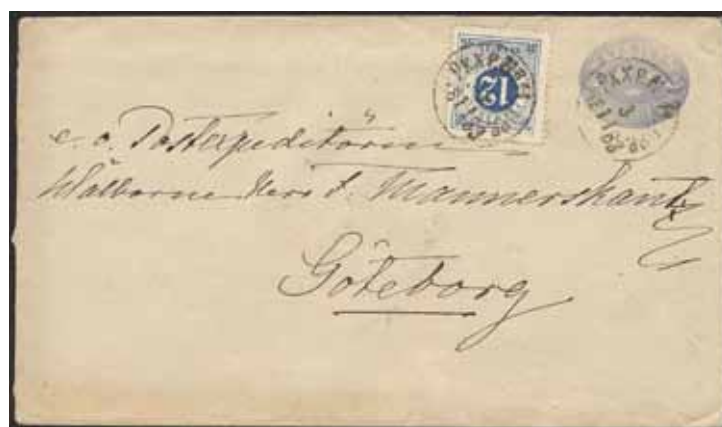 12
PKXP. Nr
e. o. Postexpeditören
Wälborne Herr f. Mannerskantz
Göteborg